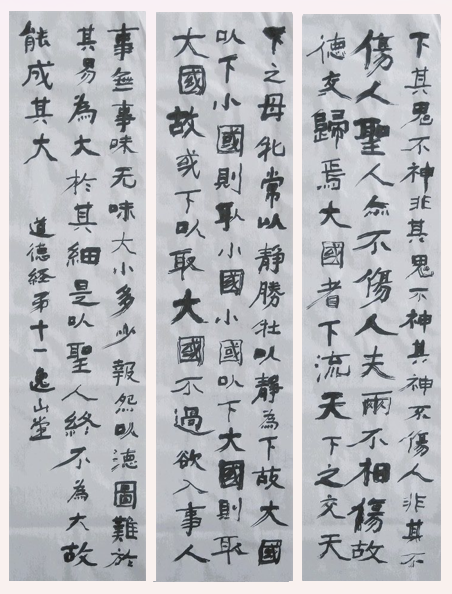 下其鬼不神非其鬼不神其神不傷人非其不
傷人聖人亦不傷人夫兩不相傷故
德交歸焉大國者下流天下之交天
下之母牝常以靜勝牡以靜為下故大國
以下小國則取小國小國以下大國則取
大國故或下以取大國不過欲入事人
事無事味无味大小多少報怨以德圖難於
其易為大於其細是以聖人終不為大故
能成其大 道德經弟十一逸山堂